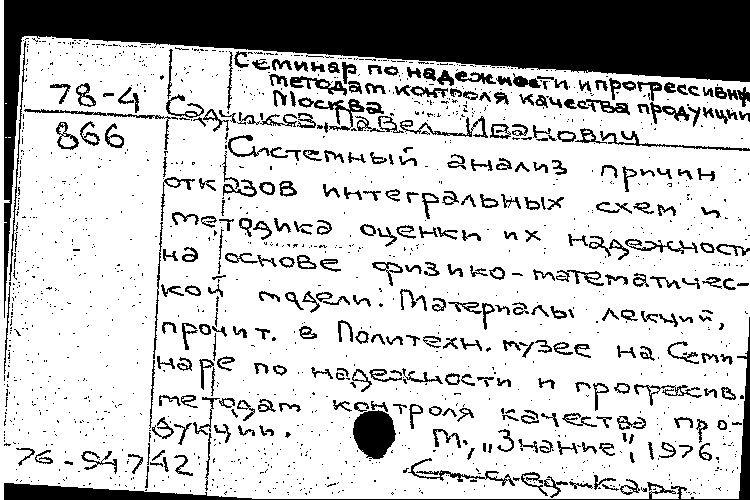 Семинар по надежности и прогрессивным
методам контроля качества продукции
Москва
78-4
866
Садчиков, Павел Иванович
Системный анализ причин
отказов интегральных схем и
методика оценки их надежности
на основе физико-математичес-
кой модели. Материалы лекций,
прочит. в Политехн. музее на Семи-
наре по надежности и прогрессив.
методам контроля качества про-
дукции.
М., „Знание", 1976.
76-94742
След. карт.